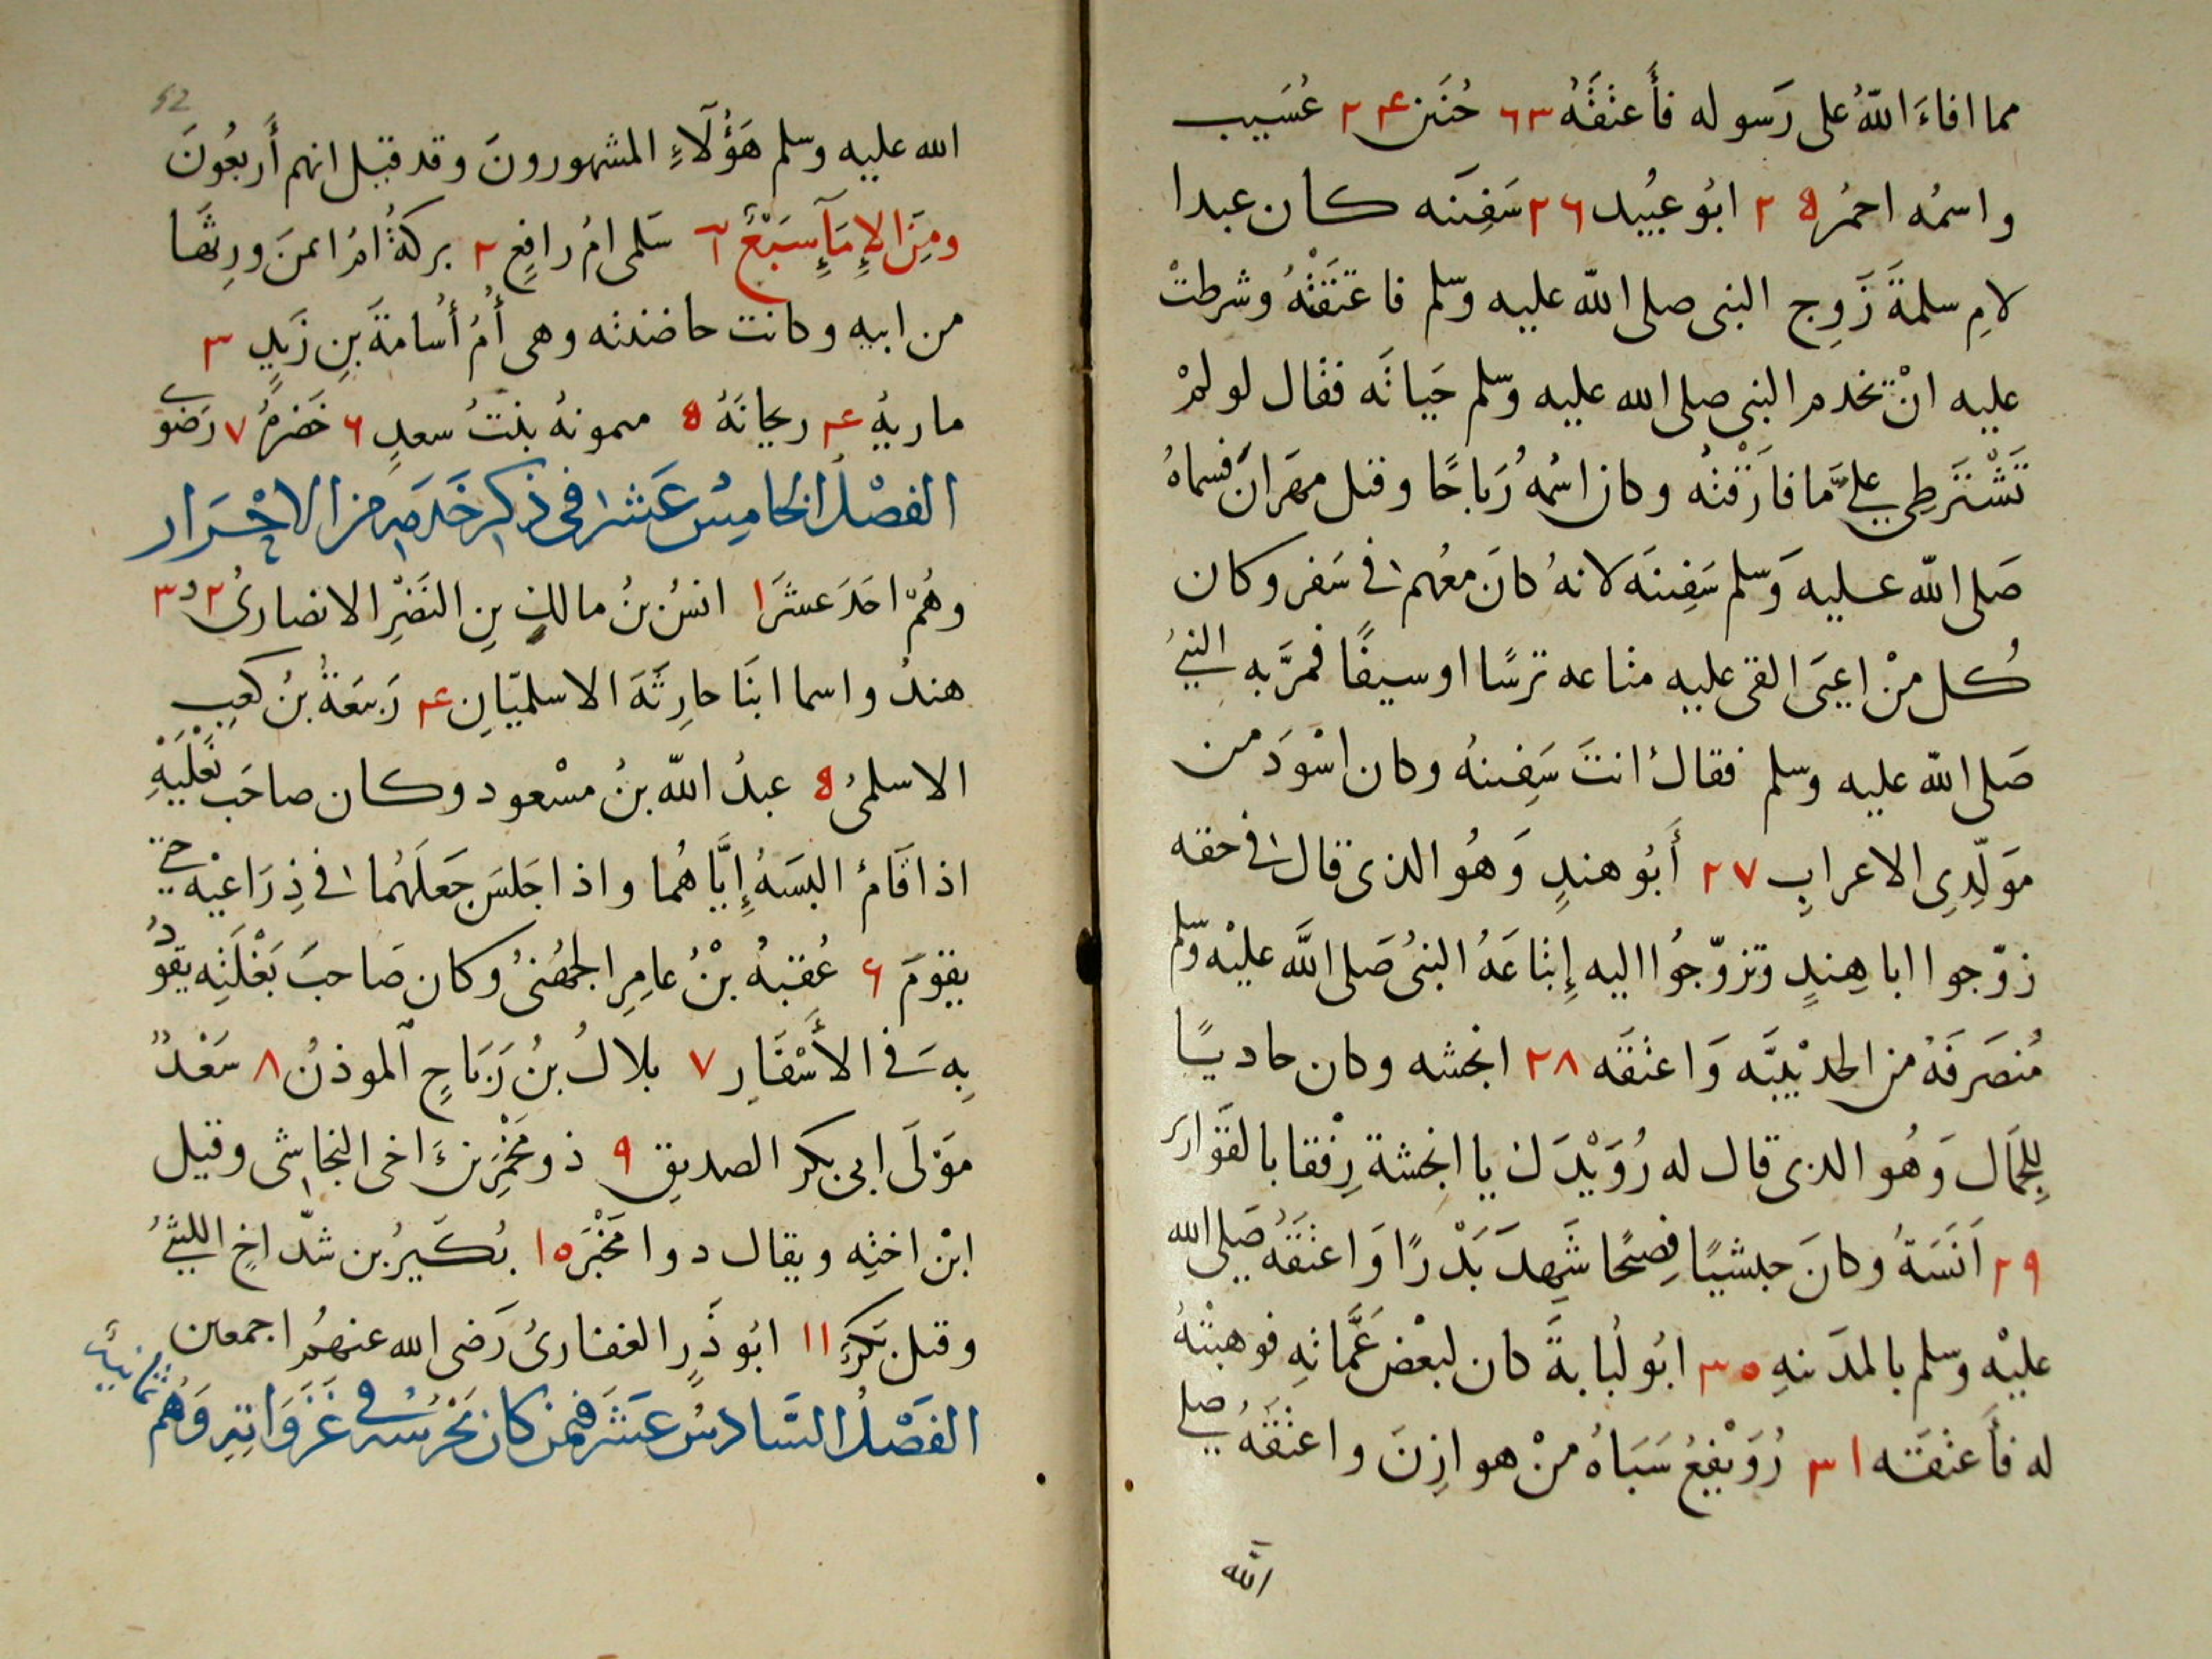 مما افاءَ اللّهُ على رَسوله فأَعتَقَهُ ٢٣ حُنَين ٢٤ عُسَيب
واسمُه احمرُ ٢٥ ابُو عبُيد ٢٦ سَفِينَه كان عبدا
لامِ سلمةَ زَوِج النبى صلى اللّه عليه وسّلم فاعتَقَتْهُ وشرطتْ
عليه انْ تخدم النبى صلى الله عليه وسّلم حَياتَه فقال لو لمْ
تَشْتَرطِى علىَّ ما فارَقْتُه وكان اسُمهُ رَباحًا وقيل مهَرانَ فسماهُ
صَلى اللّه عليه وَسّلم سَفِينَه لانهُ كانَ معُهم فى سَفر وكان
كُل منْ اعيَى القى عليه متاعه ترسًا او سيفًا فمرَّ به النبىُ
صَلى اللّه عليه وسلم فقالُ انتَ سَفِينهُ وكان اسْوَدَ من
مَوَلّدِىِ الاعرابِ ٢٧ أَبُو هندٍ وَهُو الذى قال فى حقه
زوّجوا ابا هِندٍ وتزوّجُوا اليه إِبتاعَهُ النبىُ صَلى اللَّه عليْه وسّلم
مُنصَرَفَهُ من الحديْبيَّه وَاعتقَه ٢٨ انجشه وكان حاديًا
لِلجَمَال وَهُو الذى قال له رُوَيْدَك يا انجشة رِفْقا بالقَوارير
٢٩ اَنَسَةُ وكانَ حبشيًا فصِحًا شَهِدَ بَدْرًا وَاعتَقَهُ صَلى الله
عليْه وسلم بالمدَينهِ ٣٠ ابُو لُبابةَ كان لبعْض عَمَّاتهِ فوهبتْهُ
له فأَعتقَه ٣١ رُوَيْفِعُ سَبَاهُ منْ هوازِنَ واعتْقَهُ صلى
الله
52
الله عليه وسلم هَؤُلآءِ المشهورونَ وقد قيل انهم أَربعُونَ
ومِنَ الإِمَآءِ سَبْعٌ ١ سَلمى امُ رافِعٍ ٢ بركةُ امُ ايمنَ ورِثَها
من ابيهِ وكانت حاضنته وهى أُمُ أُسامةَ بنِ زَيدٍ ٣
ماريهُ ٤ ريحانَهُ ٥ ميمونهُ بنتُ سعدٍ ٦ خَضِرةُ ٧ رَضوَى
الفصْلُ الخامِسُ عَشَر فى ذِكرِ خَدَمِهِ من الاحْرَار
وهُمْ احَدَ عَشَرَ ١ انسُ بنُ مالكِ بنِ النَضْرِ الانصارىُ ٢ و٣
هندُ واسما ابنَا حارِثَهَ الاسلميّانِ ٤ رَبيعَةُ بنُ كعبِ
الاسلمىُ ٥ عبدُ اللّه بنُ مسْعود وكان صاحَب نَعْلَيْهِ
اذا قَامُ البسَهُ إِيَّاهُما واذا جَلسَ جَعلَهُما فى ذِرَاعيْهِ حتى
يقوَمَ ٦ عُقبهُ بْنُ عامِرِ الجهُنىُ وكان صَاحبَ بَغْلَتِه يقوُدُ
بِهِ فى الأَسْفَارِ ٧ بلالُ بنُ رَبَاحٍ الموذنُ ٨ سَعْدٌ
مَوْلَى ابى بكر الصديق ٩ ذو مِخْمَر بنُ اخى النجاشى وقيل
ابْن اختِه ويقال ذوا مَخْبَر ١٠ بُكَيرُ بن شدّاخٍ الليثىُ
وقيل بَكرُ ١١ ابُو ذَرٍ الغفارىُ رَضى الله عنهُم اجمعين
الفَصْلُ السَّادسُ عَشَر فيمن كان يَحْرُسُهُ فى غَزَوَاتِهِ وَهُم ثمانيةُ